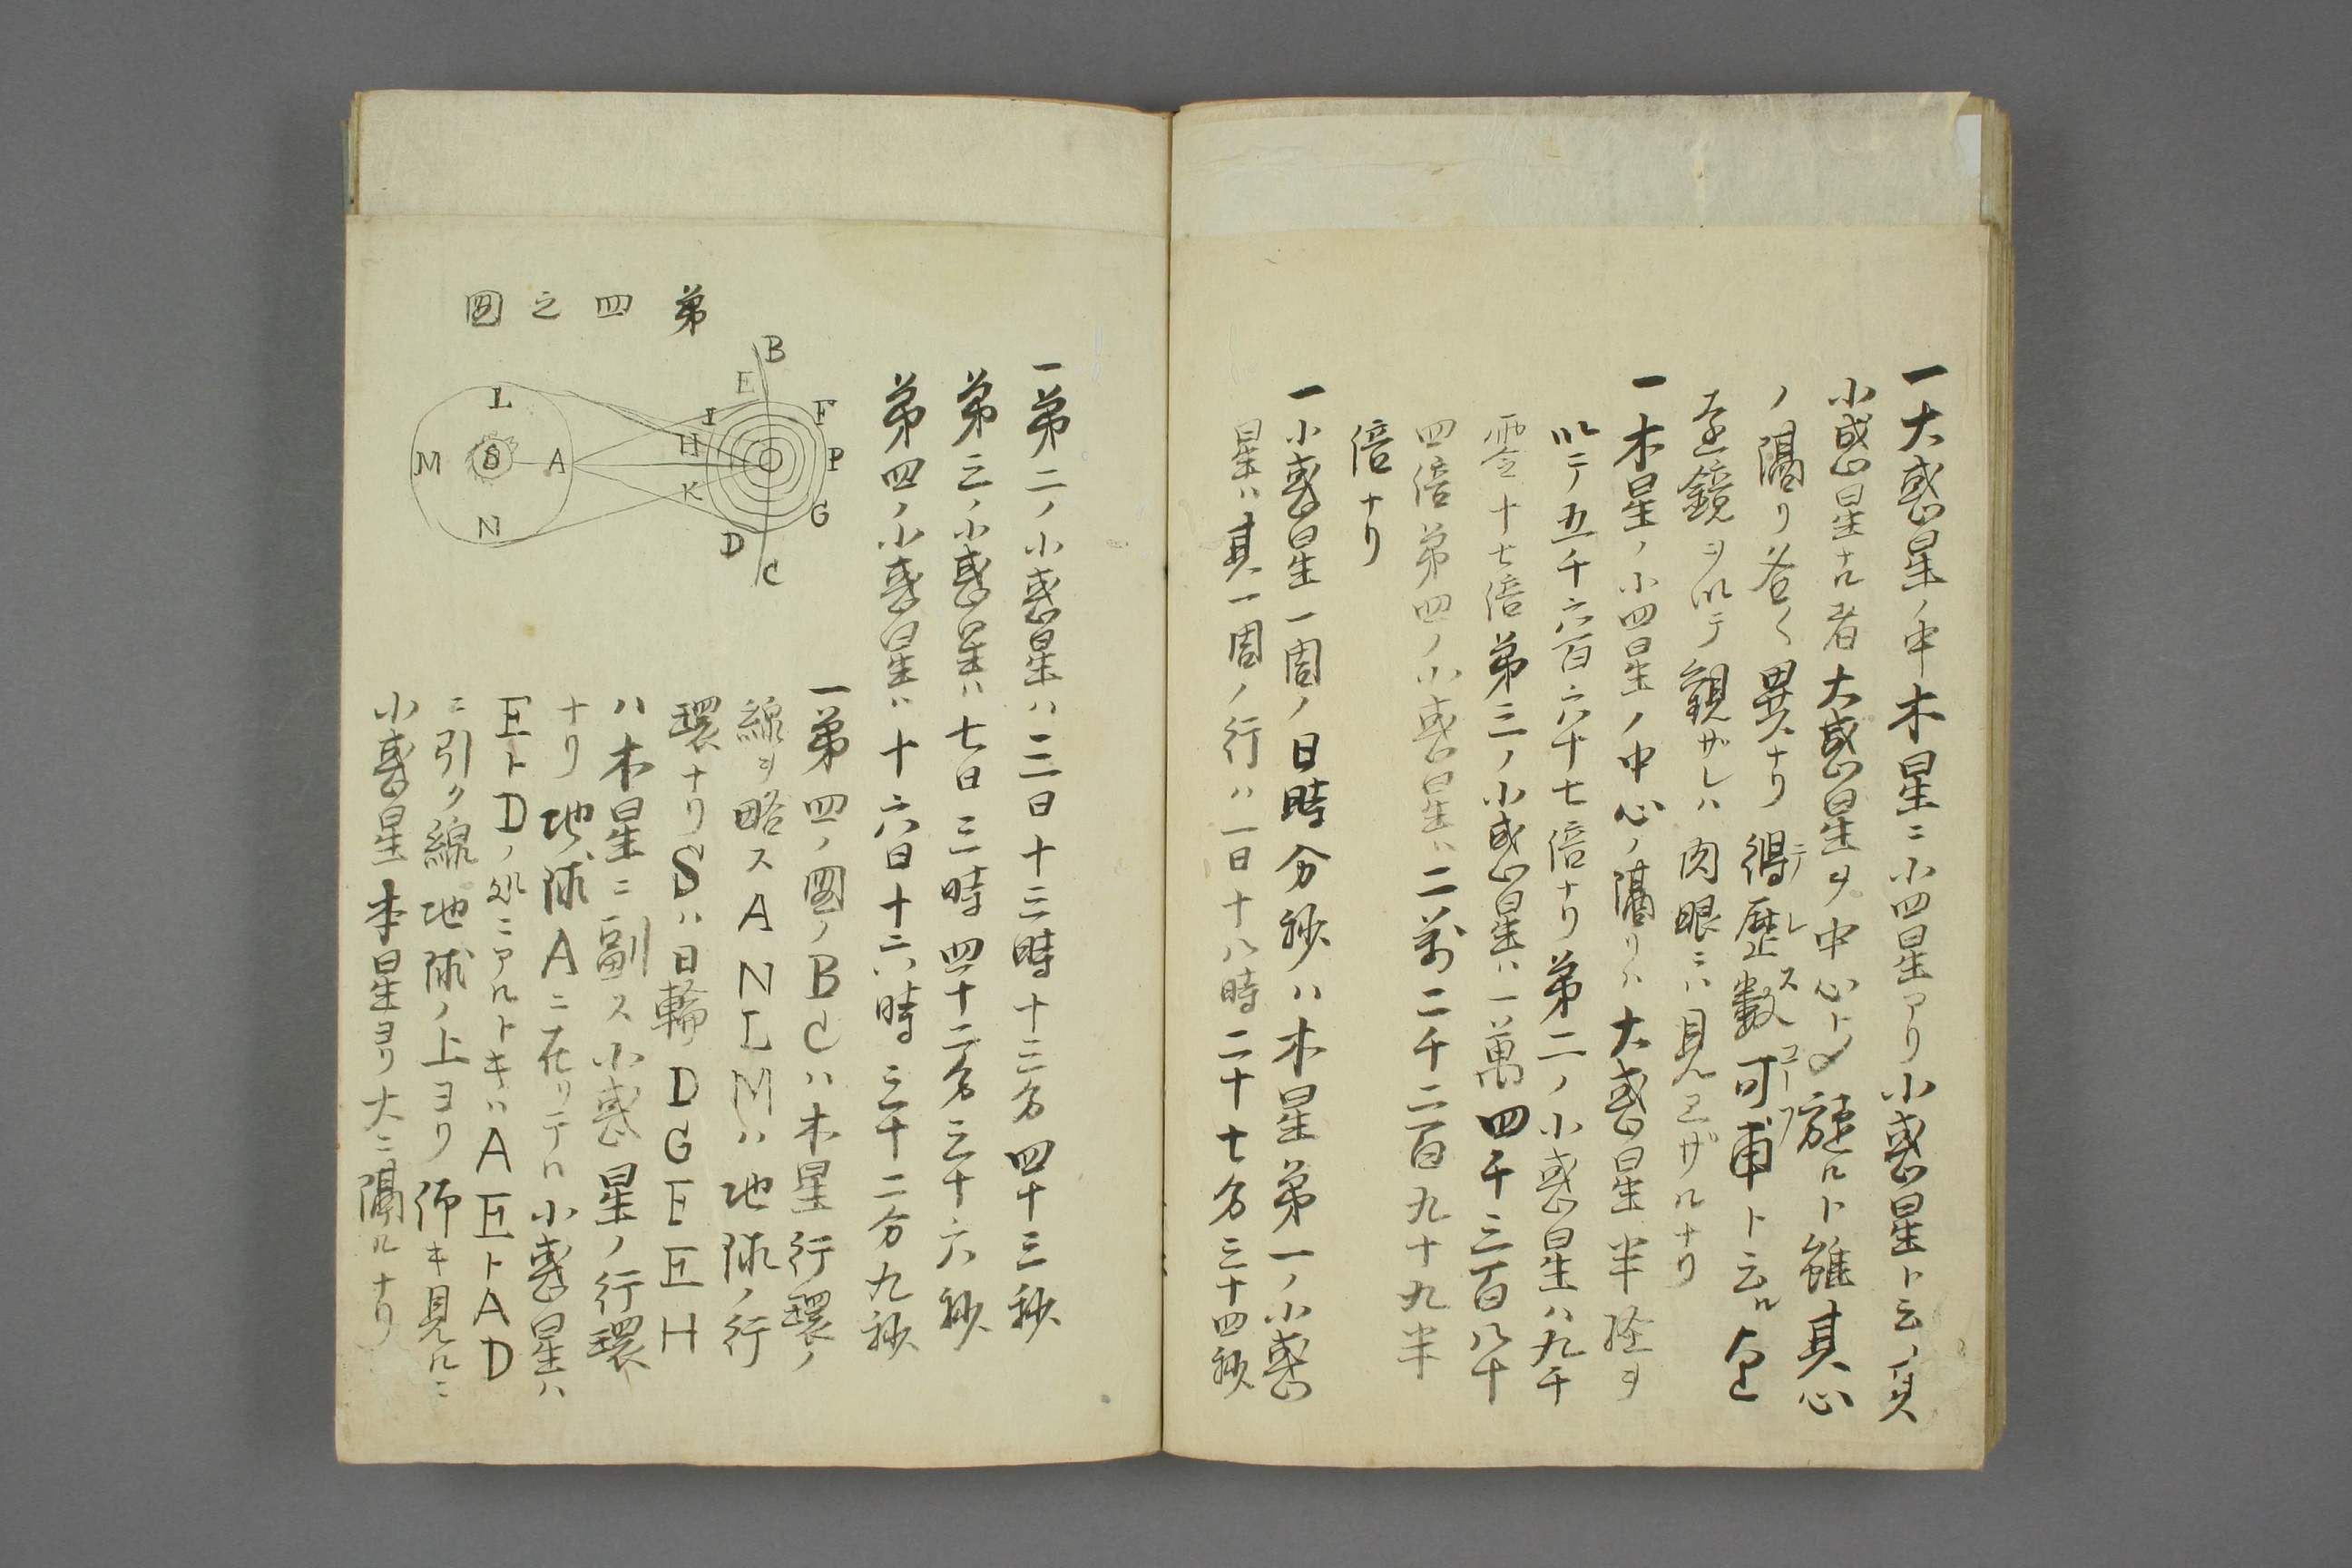 一大惑星ノ中木星ニ小四星アリ小惑星ト云ノ頁
小惑星ナル者大惑星ヲ中心トメ旋ルト雖其心
ノ隔リ各〱異ナリ得テ歴レ数ス可コーフ甫ト云ル
遠鏡ヲ以テ観ザレハ肉眼ニハ見エザルナリ
一木星ノ小四星ノ中心ノ隔リハ大惑星半径ヲ
以テ五千六百六十七倍ナリ第二ノ小惑星ハ九千
零十七倍第三ノ小惑星ハ一萬四千三百八十
四倍第四ノ小惑星ハ二萬二千二百九十九半
倍ナリ
一小惑星一周ノ日時分秒ハ木星第一ノ小惑
星ハ其一周ノ行ハ一日十八時二十七分三十四秒
一第二ノ小惑星ハ三日十三時十三分四十三秒
第三ノ小惑星ハ七日三時四十二分三十六秒
第四ノ小惑星ハ十六日十六時三十二分九秒
第四之圖
B
E
I
F
L
H
M
S
A
P
K
G
N
D
C
一第四ノ圖ノBCハ木星行環ノ
線ヲ略スANLMハ地球ノ行
環ナリSハ日輪DGFEH
ハ木星ニ副ス小惑星ノ行環
ナリ地球Aニ在リテハ小惑星ハ
EトDノ処ニアルトキハAEトAD
ニ引ク線地球ノ上ヨリ仰キ見ルニ
小惑星本星ヨリ大ニ隔ルナリ